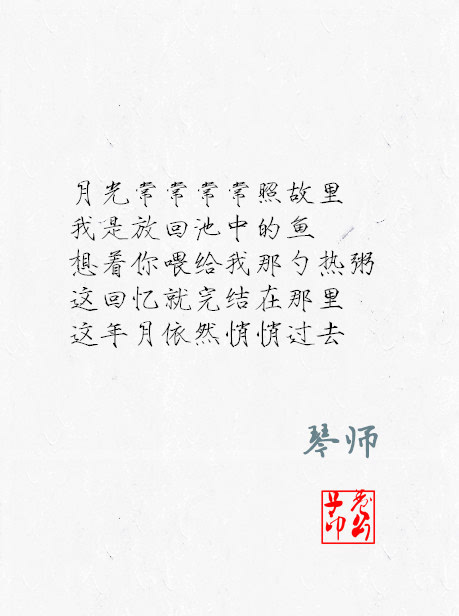 月光常常常常照故里
我是放回池中的鱼
想着你喂给我那勺热粥
这回忆就完结在那里
这年月依然悄悄过去
琴师